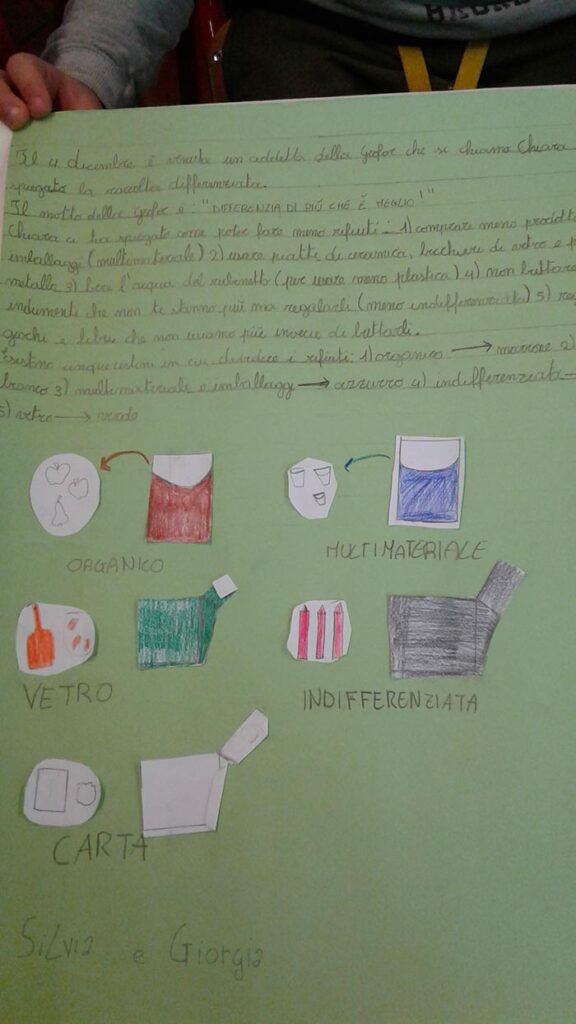 Il 4 dicembre è venuta un addetta della Gesfor che si chiama Chiara
spiegato la raccolta differenziata.
Il motto della Gesfor è: "DIFFERENZIA DI PIÚ CHÉ É MEGLIO!"
Chiara ci ha spiegato come poter fare meno rifiuti: 1) comprare meno prodotti
imballaggi (multimateriale) 2) usare piatti di ceramica, bicchieri di vetro e
metallo 3) bere l'acqua del rubinetto (per usare meno plastica) 4) non buttare
indumenti che non ti stanno più ma regalarli (meno indifferenziata) 5)
giochi e libri che non usiamo più invece di buttarli.
Esistono cinque cestini in cui dividere i rifiuti: 1) organico → marrone 2)
bianco 3) multimateriale e imballaggi → azzurro 4) indifferenziata →
5) vetro → verde
ORGANICO
MULTIMATERIALE
VETRO
INDIFFERENZIATA
CARTA
SiLvia e Giorgia